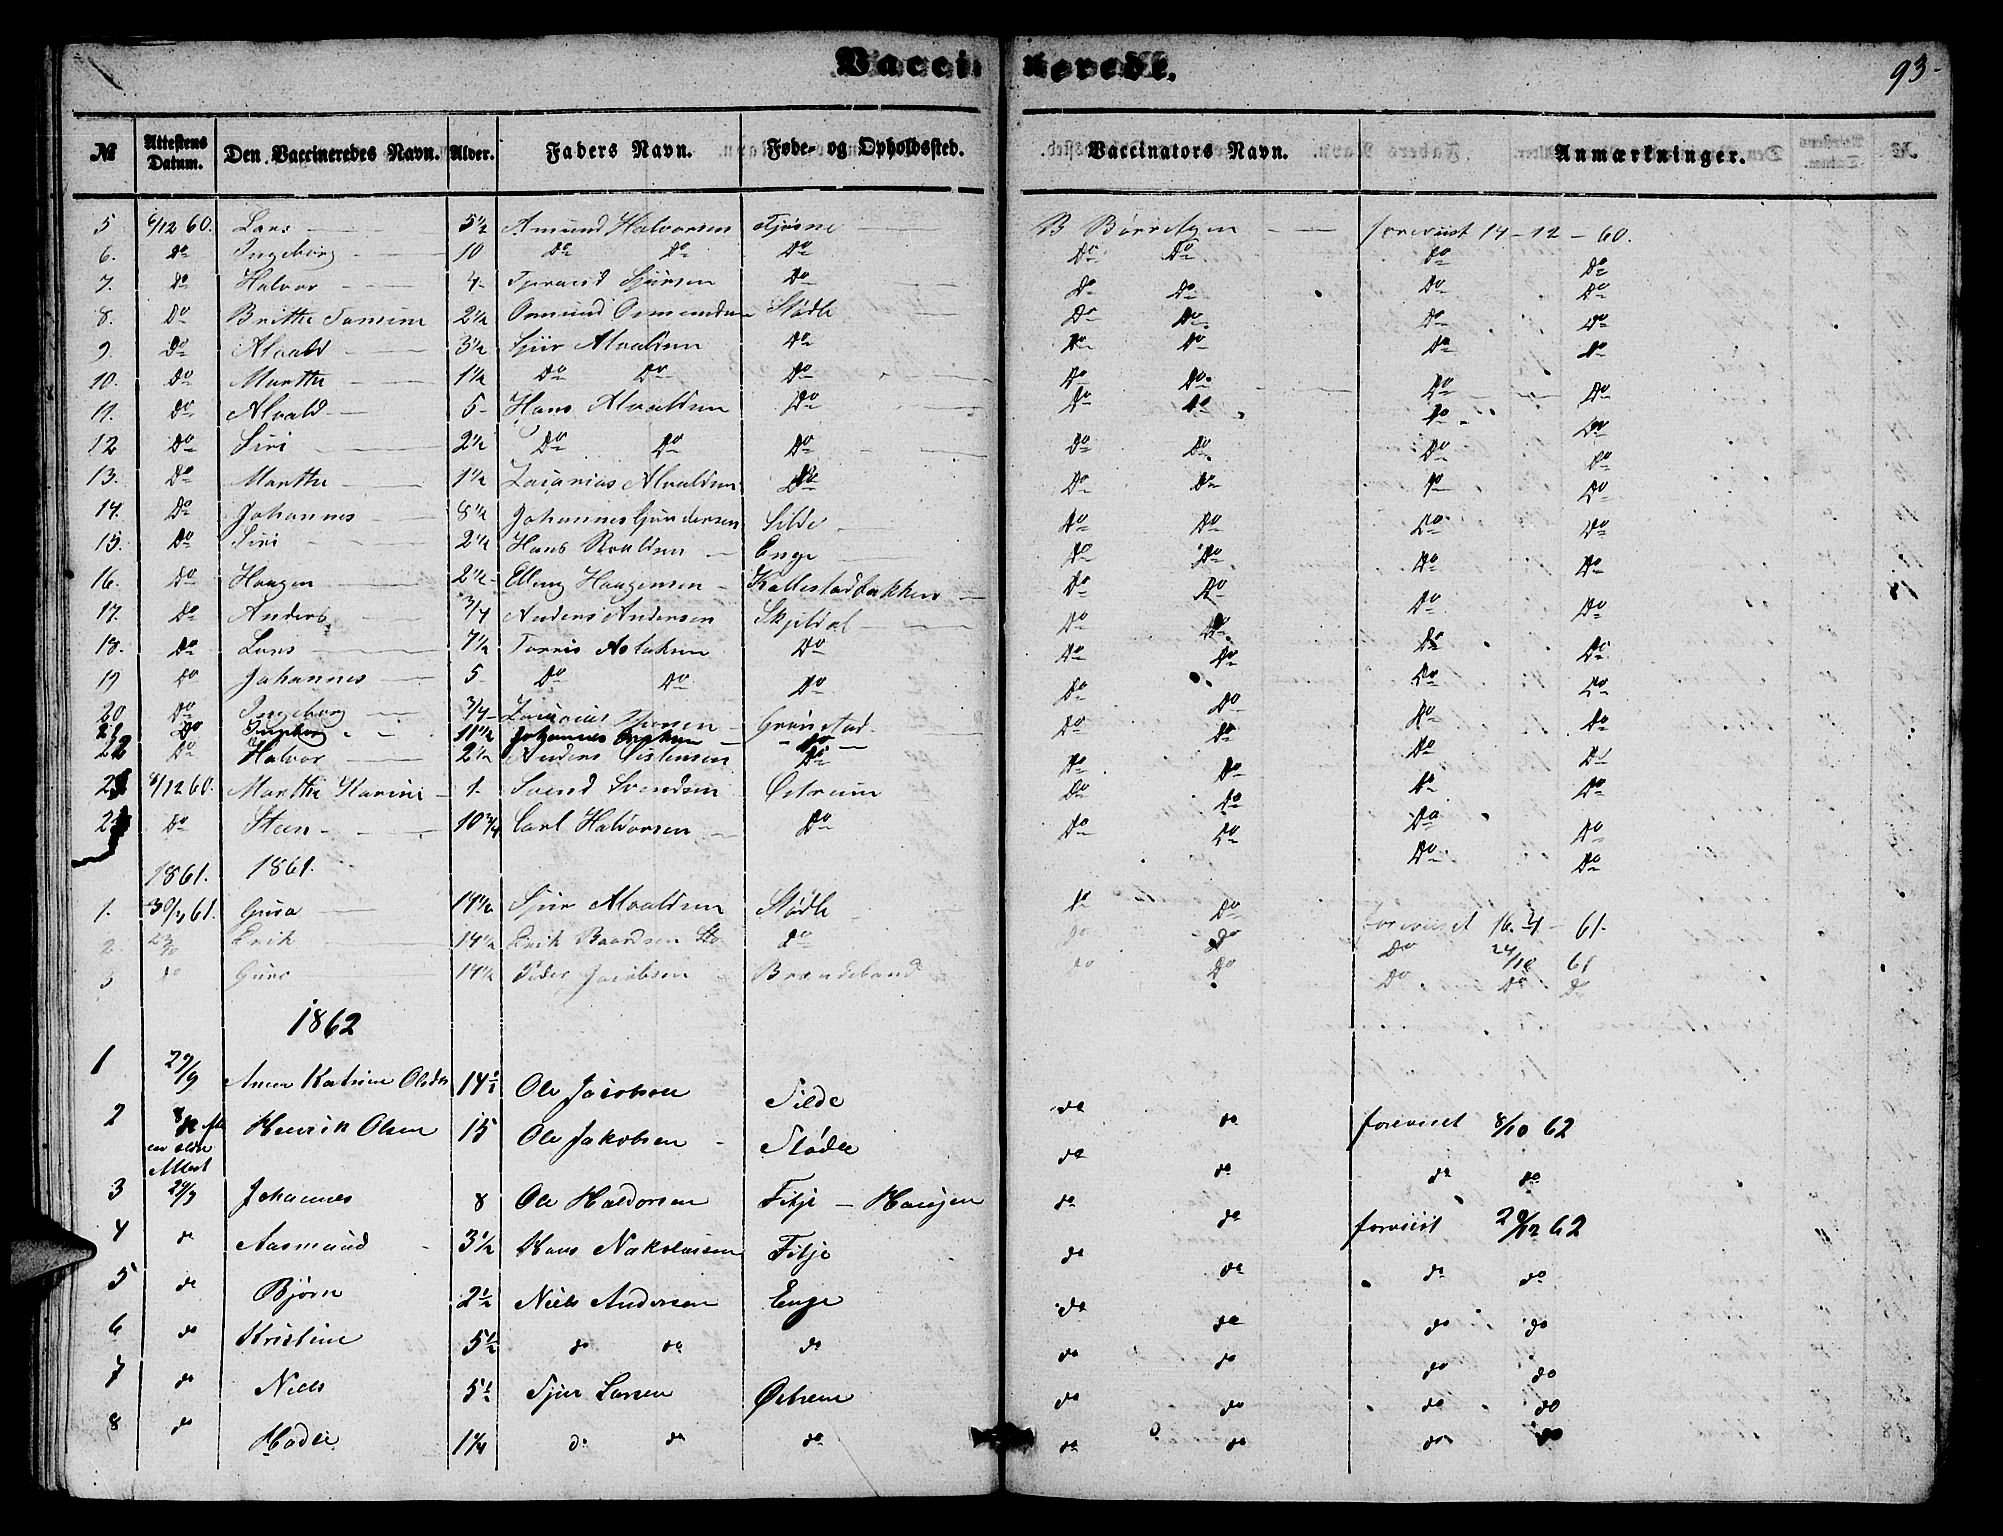 Vaccinerede. 93
№ Attestens Datum. Den Vaccineredes Navn. Alder. Faders Navn. Føde- og Opholdssted. Vaccinators Navn. Anmærkninger.
5 6/12 60. Lars 5 1/2 Amund Halvorsen Tjøsne B Børresen forevist 14-12-60.
6. Do Ingeborg 10 Do Do Do Do Do Do Do
7. Do Halvor 4 Sjursen Do Do Do Do Do
8. Do Brithe 2 1/2 Osmund Osmundsen Stødle Do Do Do Do
9. Do Alvald 3 1/2 Sjur Alvaldsen Do Do Do Do Do
10. Do Marthe 1 1/2 Do Do Do Do Do Do Do
11. Do Alvald 5 Hans Alvaldsen Do Do Do Do Do
12 Do Siri 2 1/2 Do Do Do Do Do Do Do
13. Do Marthe 1 1/2 Zacarias Alvaldsen Do Do Do Do Do
14. Do Johannes 8 1/2 Johannes Gundersen Silde Do Do Do Do
15. Do Siri 2 1/2 Hans Roaldsen Enge Do Do Do Do
16. Do Haagen 2 1/2 Elling Haagensen Kallestadbakken Do Do Do Do
17. Do Anders 3/4 Anders Andersen Skjeldal Do Do Do Do
18. Do Lars 7 1/2 Torris Aslaksen Do Do Do Do Do
19 Do Johannes 5 Do Do Do Do Do Do Do
20 Do Ingeborg 3/4 Zacarias Grønstad Do Do Do Do
21 Do Ingeborg 11 1/2 Johannes Do
22 Do Halvor 2 1/2 Anders Østensen Do Do Do Do Do
6/12 60. Marthe Karine 1 Svend Svendsen Østreim Do Do Do Do
Do Steen 10 3/4 Carl Halvorsen Do Do Do Do Do
1861. 1861.
1. 30/3 61. Guro 14 1/2 Sjur Alvaldsen Stødle Do Do forevist 16. 4 - 61.
2 Erik 14 1/2 Erik Baardsen Do do do Do 24/10 61
3 do Guro 14 1/2 Peder Jacobsen do Do Do Do Do
1862
1 29/9 Anna Katrine Olsdtr 14 1/2 Ole Jacobsen Silde do do forevist 8/10 62
2 en ældre Attest Henrik Olsen 15 Ole Jakobsen Stødle do do do do
3 29/9 Johannes 8 Ole Haldorsen Fitje - Haugen do do forevist 62
4 do Aasmund 3 1/2 Hans Fitje do do do do
5 do Bjørn 2 1/2 Niels Andersen Enge do do do do
6 do Kristine 5 1/2 do do do do do do do
7 do Niels 5 1/2 Sjur Larsen Østrem do do do do
8 do Hodle 1 1/4 do do do do do do do